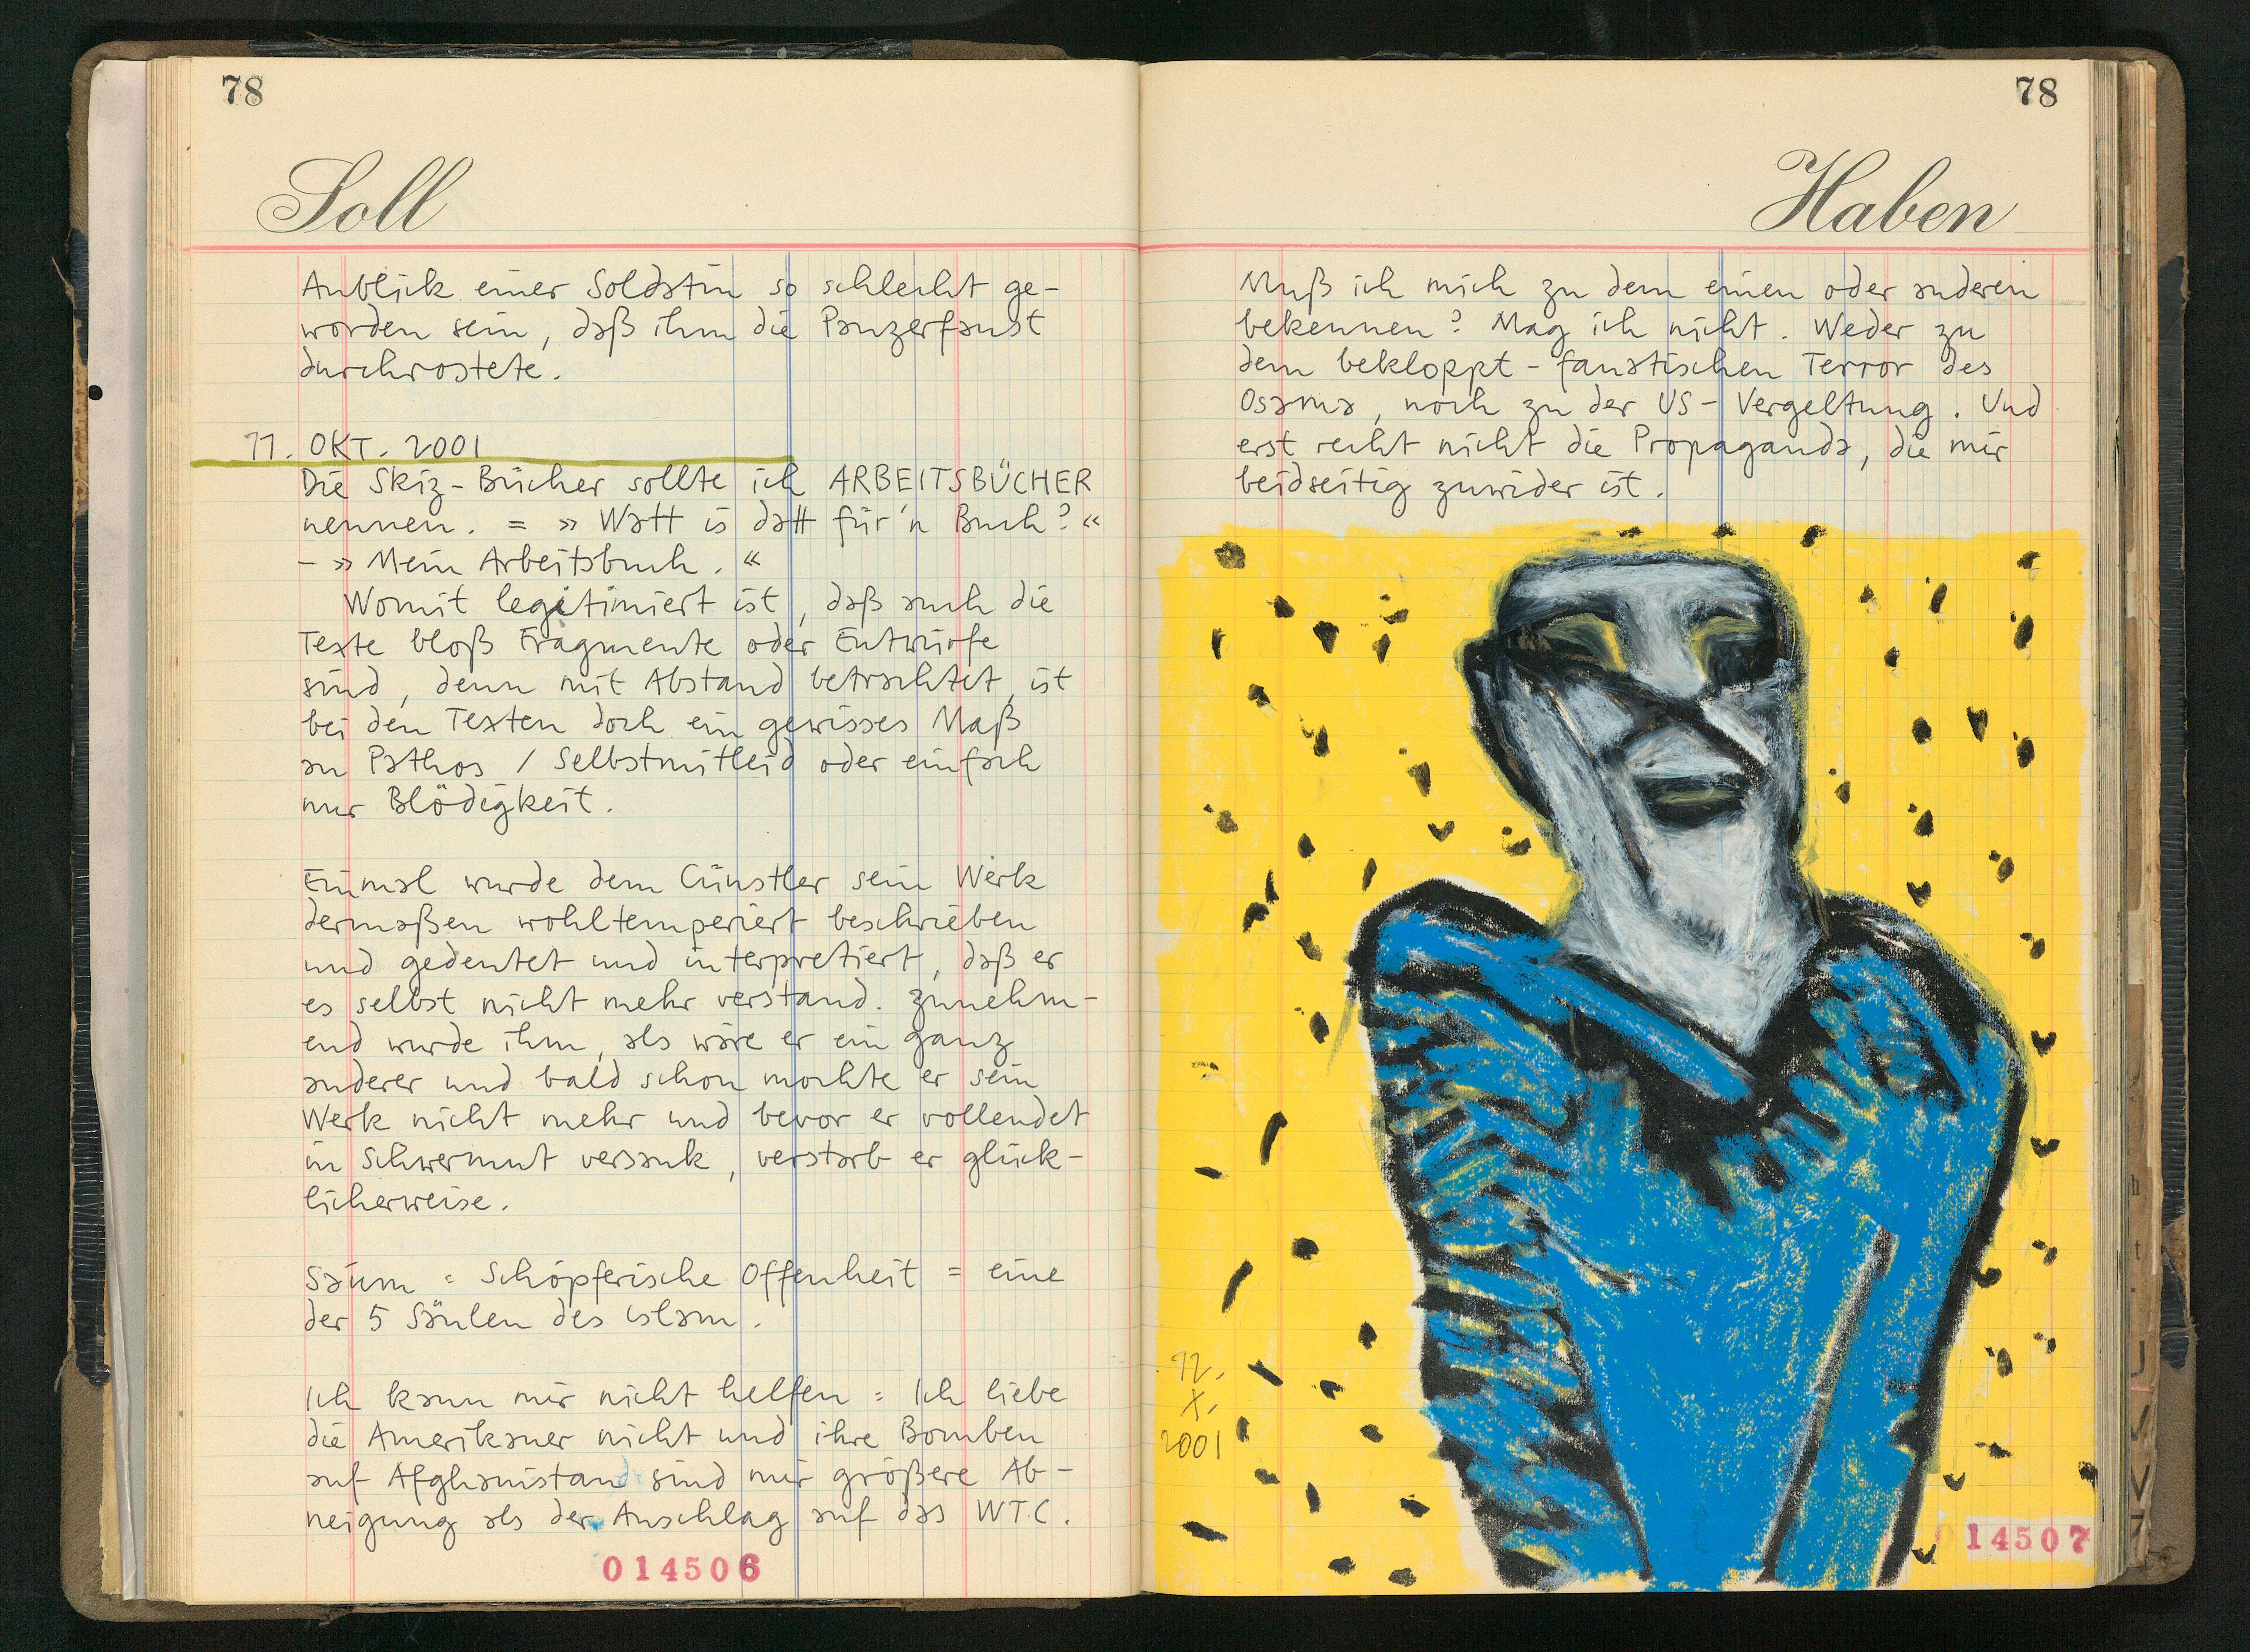 78
Soll
Anblick einer Soldatin so schlecht ge-
worden sein, daß ihm die Panzerfaust
durchrostete.
11. OKT. 2001
Die Skiz-Bücher sollte ich ARBEITSBÜCHER
nennen. = » Watt is datt für'n Buch? «
- » Mein Arbeitsbuch. «
Womit legitimiert ist, daß auch die
Texte bloß Fragmente oder Entwürfe
sind, denn mit Abstand betrachtet, ist
bei den Texten doch ein gewisses Maß
an Pathos / Selbstmitleid oder einfach
nur Blödigkeit.
Einmal wurde dem Cünstler sein Werk
dermaßen wohltemperiert beschrieben
und gedeutet und interpretiert, daß er
es selbst nicht mehr verstand. Zunehm-
end wurde ihm, als wäre er ein ganz
anderer und bald schon mochte er sein
Werk nicht mehr und bevor er vollendet
in Schwermut versank, verstarb er glück-
licherweise.
Saum = Schöpferische Offenheit = eine
der 5 Säulen des islam.
Ich kann mir nicht helfen : Ich liebe
die Amerikaner nicht und ihre Bomben
auf Afghanistan sind mir größere Ab-
neigung als der Anschlag auf das WTC.
014506
78
Haben
Muß ich mich zu dem einen oder anderen
bekennen? Mag ich nicht. Weder zu
dem bekloppt-fanatischen Terror des
Osama, noch zu der US-Vergeltung. Und
erst recht nicht die Propaganda, die mir
beidseitig zuwider ist.
12.
X.
2001
014507